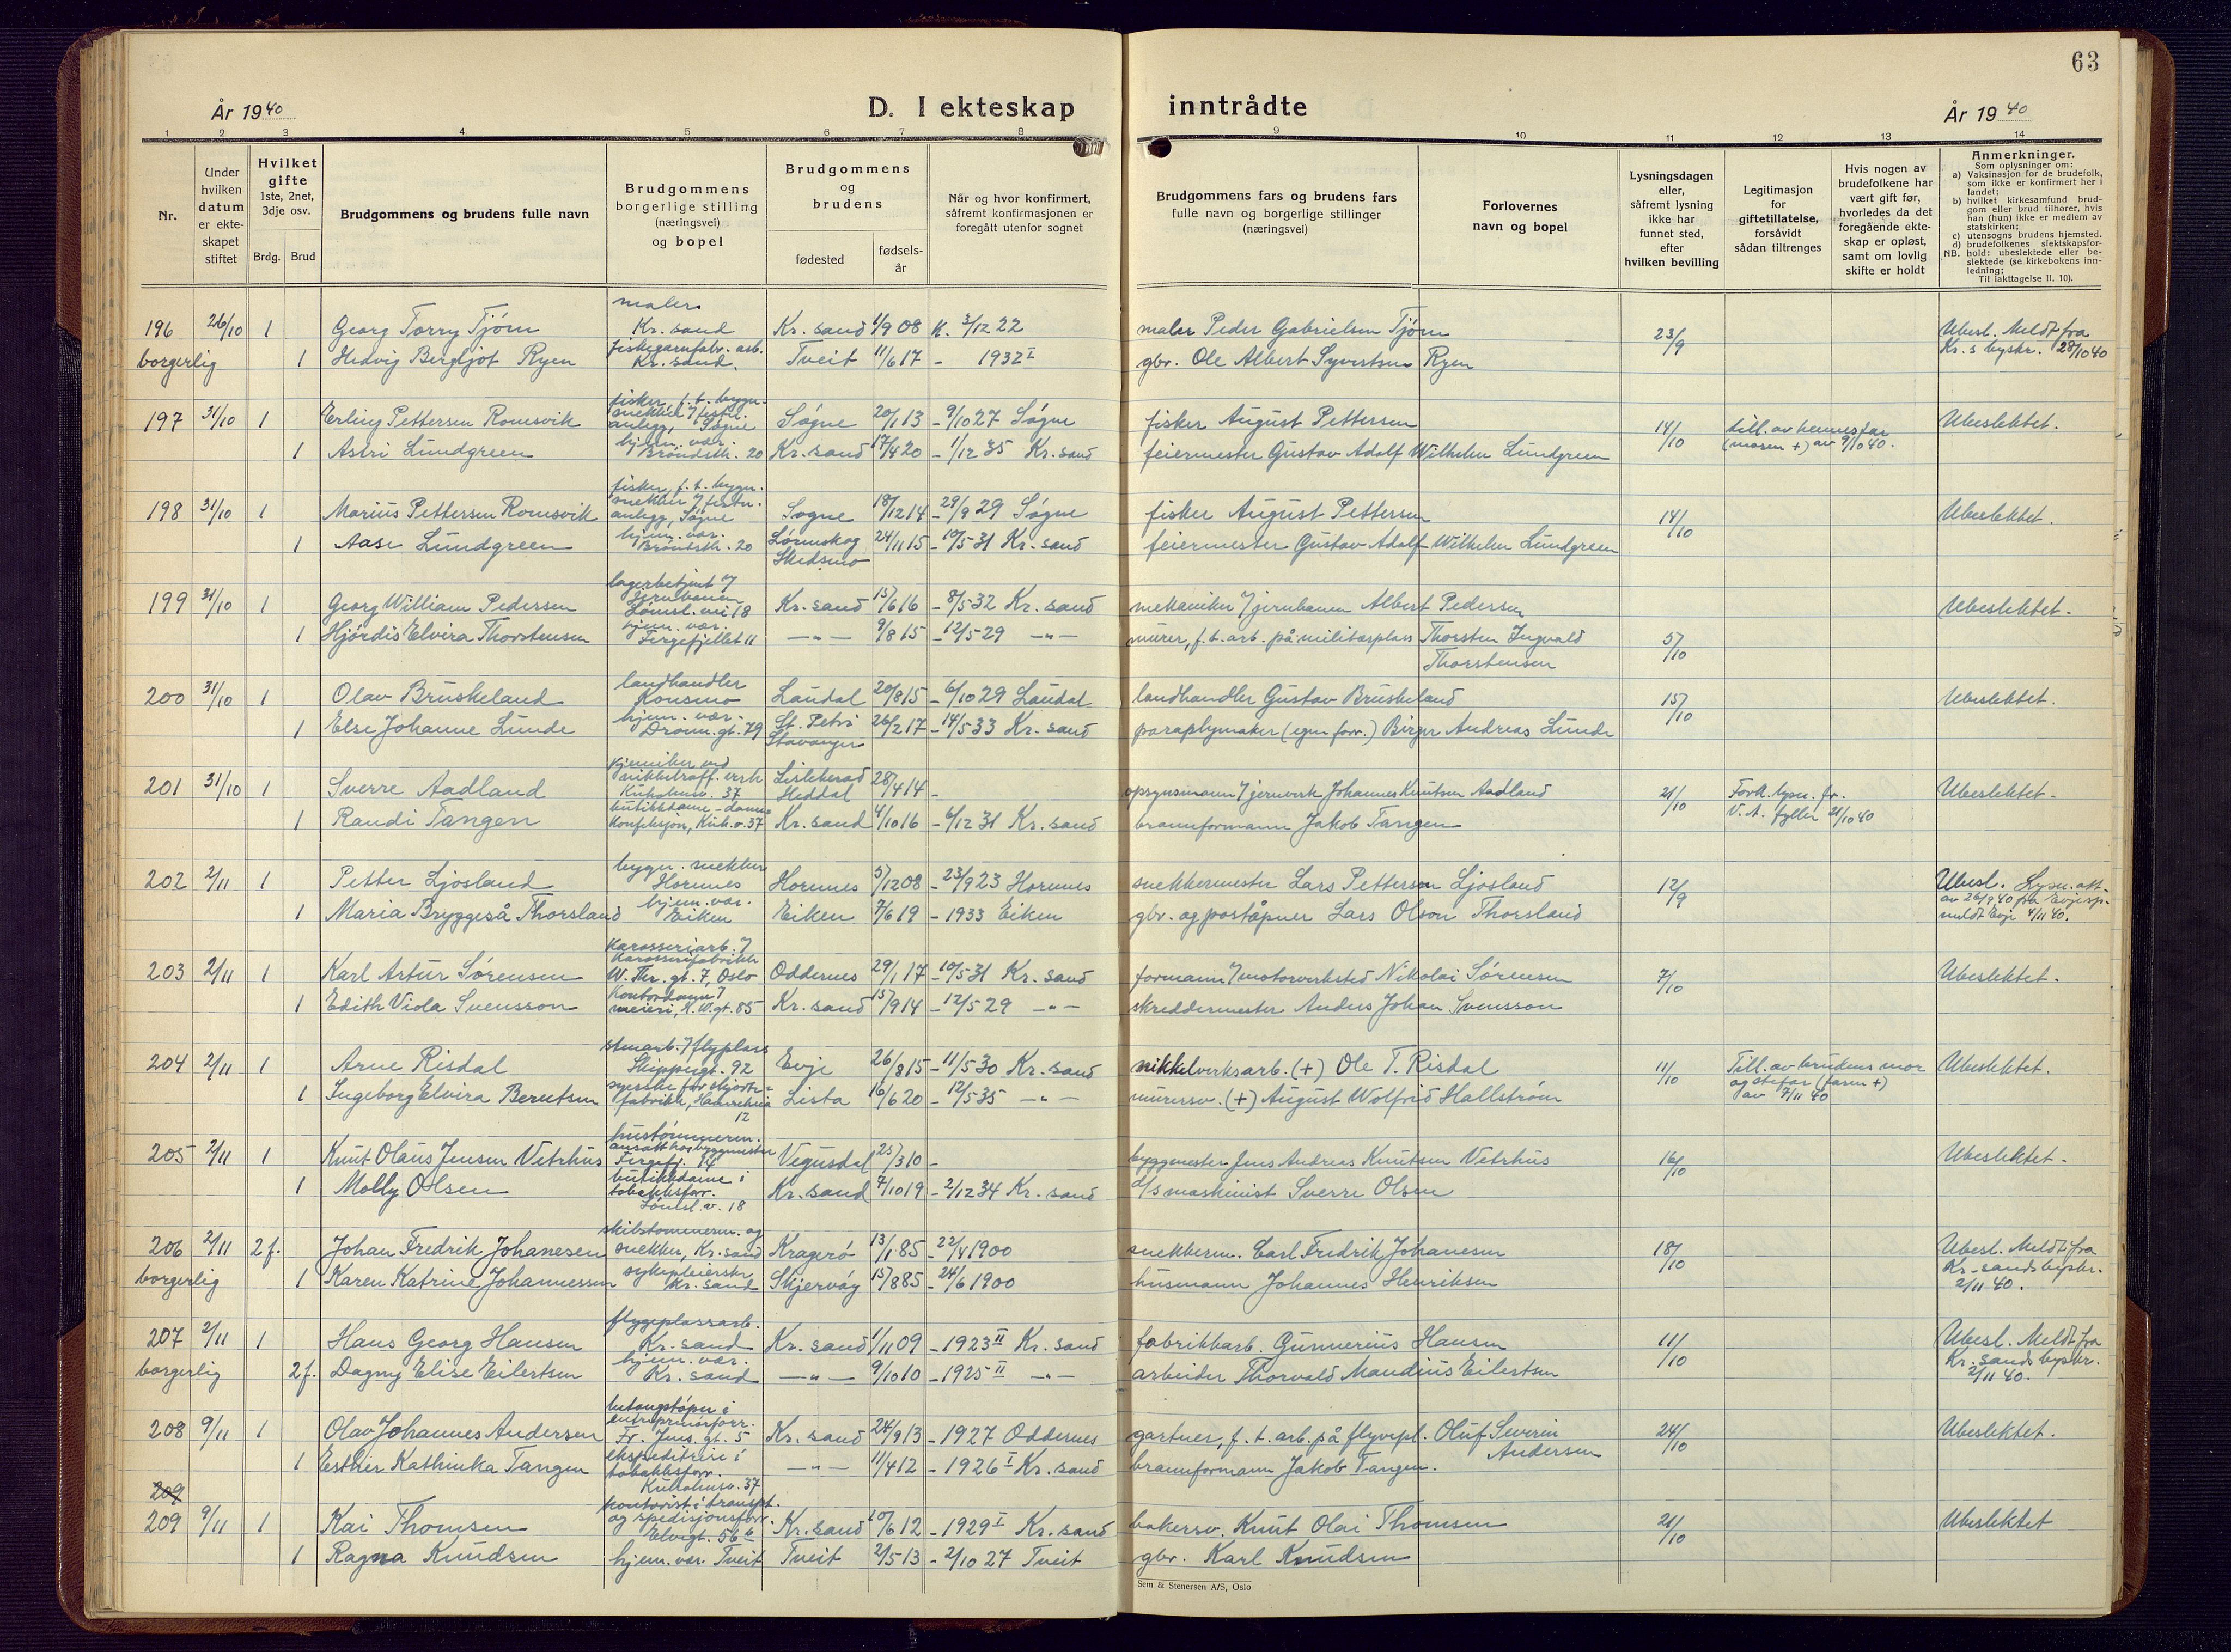 63
År 1940
D. I ekteskap
inntrådte
År 1940
1 2 3 4 5 6 7 8 9 10 11 12 13 14
Nr.
Under
hvilken
datum
er ekte-
skapet
stiftet
Hvilket
gifte
1ste, 2net,
3dje osv.
Brdg. Brud
Brudgommens og brudens fulle navn
Brudgommens
borgerlige stilling
(næringsvei)
og bopel
Brudgommens
og
brudens
fødested
fødsels-
år
Når og hvor konfirmert,
såfremt konfirmasjonen er
foregått utenfor sognet
Brudgommens fars og brudens fars
fulle navn og borgerlige stillinger
(næringsvei)
Forlovernes
navn og bopel
Lysningsdagen
eller,
såfremt lysning
ikke har
funnet sted,
efter
hvilken bevilling
Legitimasjon
for
giftetillatelse,
forsåvidt
sådan tiltrenges
Hvis nogen av
brudefolkene har
vært gift før,
hvorledes da det
foregående ekte-
skap er opløst,
samt om lovlig
skifte er holdt
Anmerkninger.
Som oplysninger om:
a) Vaksinasjon for de brudefolk,
som ikke er konfirmert her i
landet;
b) hvilket kirkesamfund brud-
gom eller brud tilhører, hvis
han (hun) ikke er medlem av
statskirken;
c) utensogns brudens hjemsted.
d) brudefolkenes slektskapsfor-
NB. hold: ubeslektede eller be-
slektede (se kirkebokens inn-
ledning;
Til iakttagelse II. 10).
maler
196 26/10 1 Georg Torry Tjöm Kr. sand Kr. sand 1/9 08 K. 3/12 22 maler Peder Gabrielsen Tjöm 23/9 Ubesl. Meldt fra
fiskegarnfabr. arb. Kr. s byskr. 28/10 40
borgerlig 1 Hedvig Bergljot Ryen Kr. sand. Tveit 11/6 17 - 1932 I gbr. Ole Albert Syvertsen Ryen
fisker, f. t. bygn.
snekker
197 31/10 1 Erling Pettersen Romsvik anlegg, Søgne Søgne 20/1 13 - 9/10 27 Søgne fisker August Pettersen 14/10 till. av hennes far Ubeslektet.
hjem. vær. (moren +) av 9/10 40.
1 Astri Lundgreen Bröndstr. 20 Kr. sand 17/4 20 - 1/12 35 Kr. sand feiermester Gustav Adolf Wilhelm Lundgreen
fisker, f. t. bygn.
snekker
198 31/10 1 Marius Pettersen Romsvik anlegg, Søgne Søgne 18/12 14 - 29/9 29 Søgne fisker August Pettersen 14/10 Ubeslektet.
hjem. vær.
1 Aase Lundgreen Bröndstr. 20 Lørenskog 24/11 15 - 10/5 31 Kr. sand feiermester Gustav Adolf Wilhelm Lundgreen
Skedsmo
lagerbetjent v/
jernbanen
199 31/10 1 Georg William Pedersen Lömsl. vei 18 Kr. sand 15/6 16 - 8/5 32 Kr. sand mekaniker v/ jernbanen Albert Pedersen Ubeslektet.
hjem. vær.
1 Hjördis Elvira Thorstensen Fergefjellet 11 —"— 9/8 15 - 12/5 29 —"— murer, f. t. arb. på militærplass Thorsten Ingvald 5/10
Thorstensen
landhandler
200 31/10 1 Olav Bruskeland Konsmo Laudal 20/8 15 - 6/10 29 Laudal landhandler Gustav Bruskeland 15/10 Ubeslektet.
hjem. vær.
1 Else Johanne Lunde Dronn. gt. 79 St. Petri 26/2 17 - 14/5 33 Kr. sand paraplymaker (egen forr.) Birger Andreas Lunde
Stavanger
kjemiker ved
nikkelraff. verk Lisleherad
201 31/10 1 Sverre Aadland Kuholmsv. 37 Heddal 28/4 14 - opsynsmann v/ jernverk Johannes Knutsen Aadland 21/10 Fork. lysn. fr. Ubeslektet.
butikkdame - dame V. A. fyller 21/10 40
1 Randi Tangen konfeksjon, Kuh. v. 37 Kr. sand 4/10 16 - 6/12 31 Kr. sand brannformann Jakob Tangen
bygn. snekker
202 2/11 1 Petter Ljosland Hornnes Hornnes 5/12 08 - 23/9 23 Hornnes snekkermester Lars Pettersen Ljosland 12/9 Ubesl. Lysn. att.
hjem. vær. av 26/9 40 fra Evje sp.
1 Maria Bryggeså Thorsland Eiken Eiken 7/6 19 - 1933 Eiken gbr. og poståpner Lars Olson Thorsland meldt Evje 4/11 40.
Karosseriarb. v/
Karosserifabrikk
203 2/11 1 Karl Artur Sörensen W. Thr. gt. 7, Oslo Oddernes 29/1 17 - 10/5 31 Kr. sand formann v/ motorverksted Nikolai Sörensen 7/10 Ubeslektet.
Kontordame v/
1 Edith Viola Svensson meieri, K. W. gt. 85 Kr. sand 15/9 14 - 12/5 29 —"— skreddermester Anders Johan Svensson
stenarb. v/ flyplass
204 2/11 1 Arne Risdal Skippergt. 92 Evje 26/8 15 - 11/5 30 Kr. sand nikkelverksarb. (+) Ole T. Risdal 11/10 Till. av brudens mor Ubeslektet.
syerske for skjorte- og stefar (faren +)
1 Ingeborg Elvira Berntsen fabrikk, Lista 16/6 20 - 12/5 35 —"— murersv. (+) August Wolfrid Hallström av 7/11 40
12
hustömmerm.
ansatt hos byggmester
205 2/11 1 Knut Olaus Jensen Vetrhus Fergefj. 14 Vegusdal 25/3 10 - byggmester Jens Andreas Knutsen Vetrhus 16/10 Ubeslektet.
butikkdame i
1 Molly Olsen tobakksforr. Kr. sand 7/10 19 - 2/12 34 Kr. sand d/s maskinist Sverre Olsen
Lömsl. v. 18
skibstömmerm. og
206 2/11 2 f. Johan Fredrik Johanesen snekker, Kr. sand Kragerö 13/1 85 - 22/4 1900 snekkerm. Carl Fredrik Johanesen 18/10 Ubesl. Meldt fra
sykepleierske Kr. sands byskr.
borgerlig 1 Karen Katrine Johannessen Kr. sand Skjervöy 15/8 85 - 24/6 1900 husmann Johannes Henriksen 2/11 40.
flygeplassarb.
207 2/11 1 Hans Georg Hansen Kr. sand Kr. sand 1/11 09 - 1923 II Kr. sand fabrikkarb. Gunnerius Hansen 11/10 Ubesl. Meldt fra
hjem. vær. Kr. sands byskr.
borgerlig 2 f. Dagny Elise Eilertsen Kr. sand —"— 9/10 10 - 1925 II —"— arbeider Thorvald Maudius Eilertsen 2/11 40.
betongstöper i
entreprenörforr.
208 9/11 1 Olav Johannes Andersen Fr. Jens. gt. 5 Kr. sand 24/9 13 - 1927 Oddernes gartner, f. t. arb. på flyvepl. Oluf Severin 24/10 Ubeslektet.
ekspeditrise i Andersen
1 Esther Kathinka Tangen tobakksforr. —"— 11/4 12 - 1926 I Kr. sand brannformann Jakob Tangen.
Kuholmsv. 37
209
kontorist i transpt.
og spedisjonsforr.
209 9/11 1 Kai Thomsen Elvegt. 56 b Kr. sand 10/6 12 - 1929 I Kr. sand bakersv. Knut Olai Thomsen 21/10 Ubeslektet
1 Ragna Knudsen hjem. vær. Tveit Tveit 2/5 13 - 2/10 27 Tveit gbr. Karl Knudsen
Sem & Stenersen A/S, Oslo